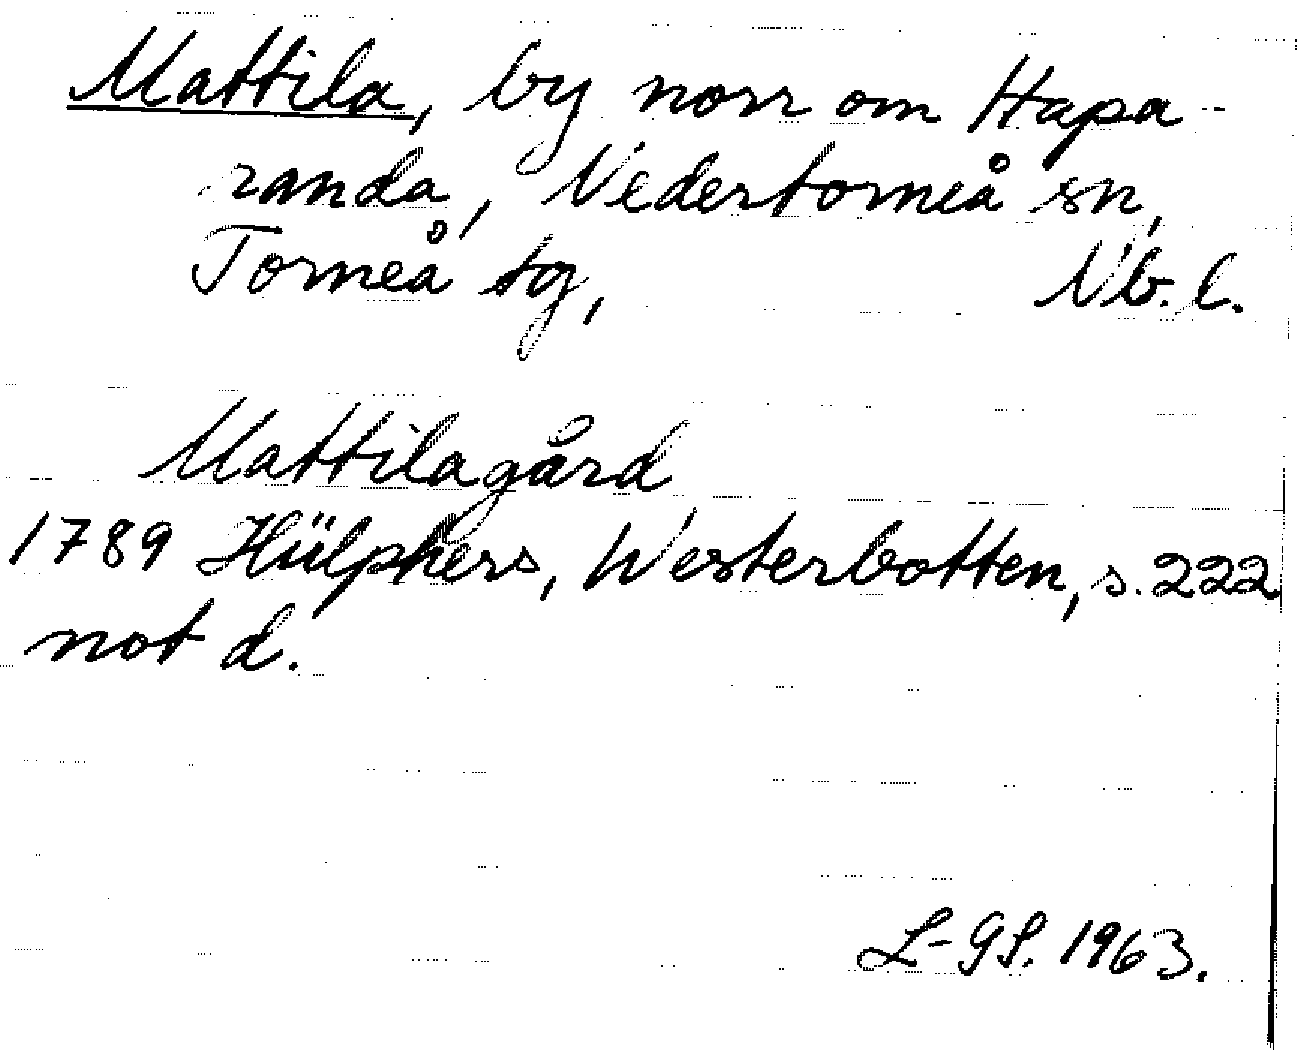 Mattila, by norr om Hapa-
randa, Nedertorneå sn,
Torneå tg, Nb. l.
Mattilagård
1789 Hülphers, Westerbotten, s. 222
not d.
L-GS. 1963.